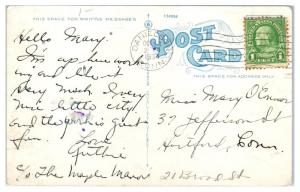 THIS SPACE FOR WRITING MESSAGES
POST CARD
THIS SPACE FOR ADDRESS ONLY
Hello Mary:
I'm up here work
ing and like it
very much. Very
nice little city
and the work is great
fun.
Love
Ruthie
c/o The Maple Manor
Miss Mary O'Connor
37 Jefferson St
Hartford, Conn.
21 Broad St